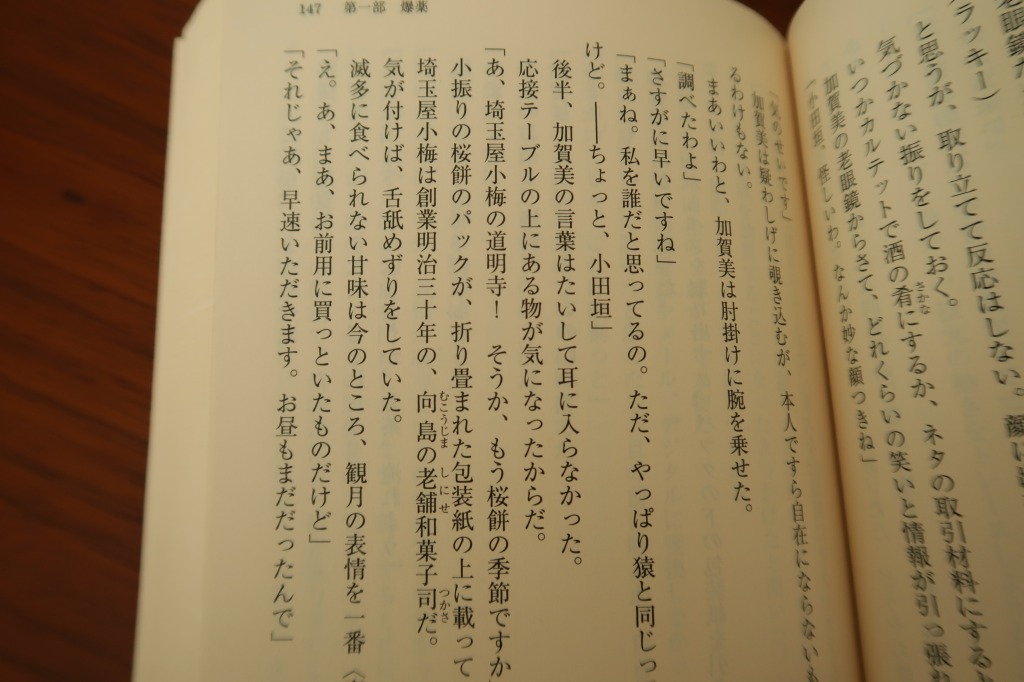 147 第一部 爆薬
ラッキー）
と思うが、取り立てて反応はしない。
気づかない振りをしておく。
いつかカルテットで酒の肴にするか、ネタの取引材料にする
加賀美の老眼鏡からさて、どれくらいの笑いと情報が引っ張れ
「小田垣、怪しいわ。なんか妙な顔つきね」
「気のせいです」
加賀美は疑わしげに覗き込むが、本人ですら自在にならないも
るわけもない。
まあいいわと、加賀美は肘掛けに腕を乗せた。
「調べたわよ」
「さすがに早いですね」
「まぁね。私を誰だと思ってるの。ただ、やっぱり猿と同じっ
けど。――ちょっと、小田垣」
後半、加賀美の言葉はたいして耳に入らなかった。
応接テーブルの上にある物が気になったからだ。
「あ、埼玉屋小梅の道明寺！　そうか、もう桜餅の季節ですか
小振りの桜餅のパックが、折り畳まれた包装紙の上に載って
埼玉屋小梅は創業明治三十年の、向島の老舗和菓子司だ。
気が付けば、舌舐めずりをしていた。
滅多に食べられない甘味は今のところ、観月の表情を一番
「え。あ、まあ、お前用に買っといたものだけど」
「それじゃあ、早速いただきます。お昼もまだだったんで」